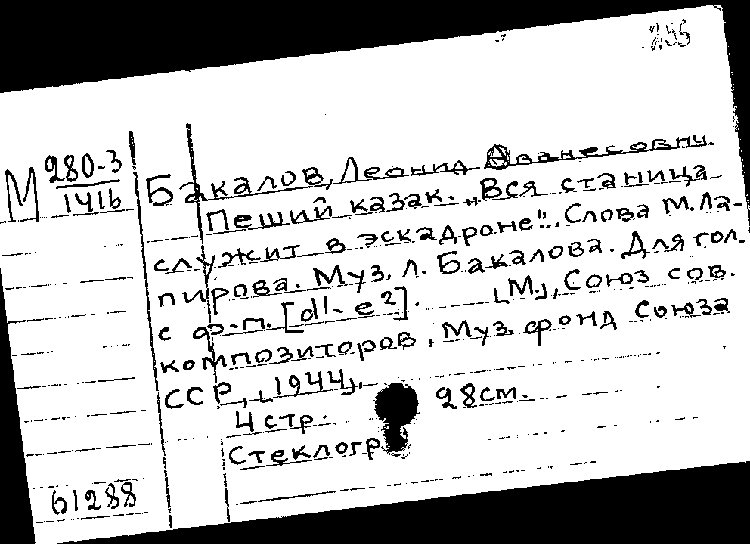 255
М 280-3
1416
Бакалов, Леонид Ованесович.
Пеший казак. „Вся станица
служит в эскадроне". Слова М. Ла-
пирова. Муз. Л. Бакалова. Для гол.
с ф-п. [d¹- e²]. [М.], Союз сов.
композиторов, Муз. фонд Союза
ССР, [1944].
4 стр. 28 см.
Стеклогр
61288